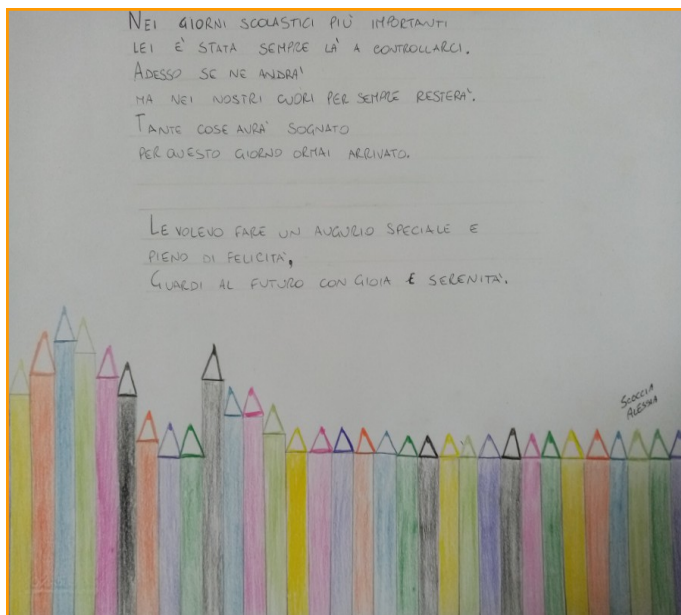 Nei giorni scolastici più importanti
lei è stata sempre là a controllarci.
Adesso se ne andrà
ma nei nostri cuori per sempre resterà.
Tante cose avrà sognato
per questo giorno ormai arrivato.
Le volevo fare un augurio speciale e
pieno di felicità,
Guardi al futuro con gioia e serenità.
Scoccia
Alessia